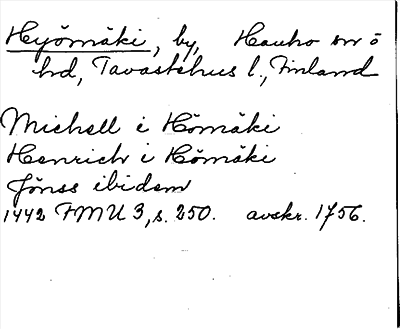 Hyömäki, by, Hauho sn ö
hd, Tavastehus l., Finland
Michell i Hömäki
Henrich i Hömäki
Jönss ibidem
1442 FMU 3, s. 250. avskr. 1756.